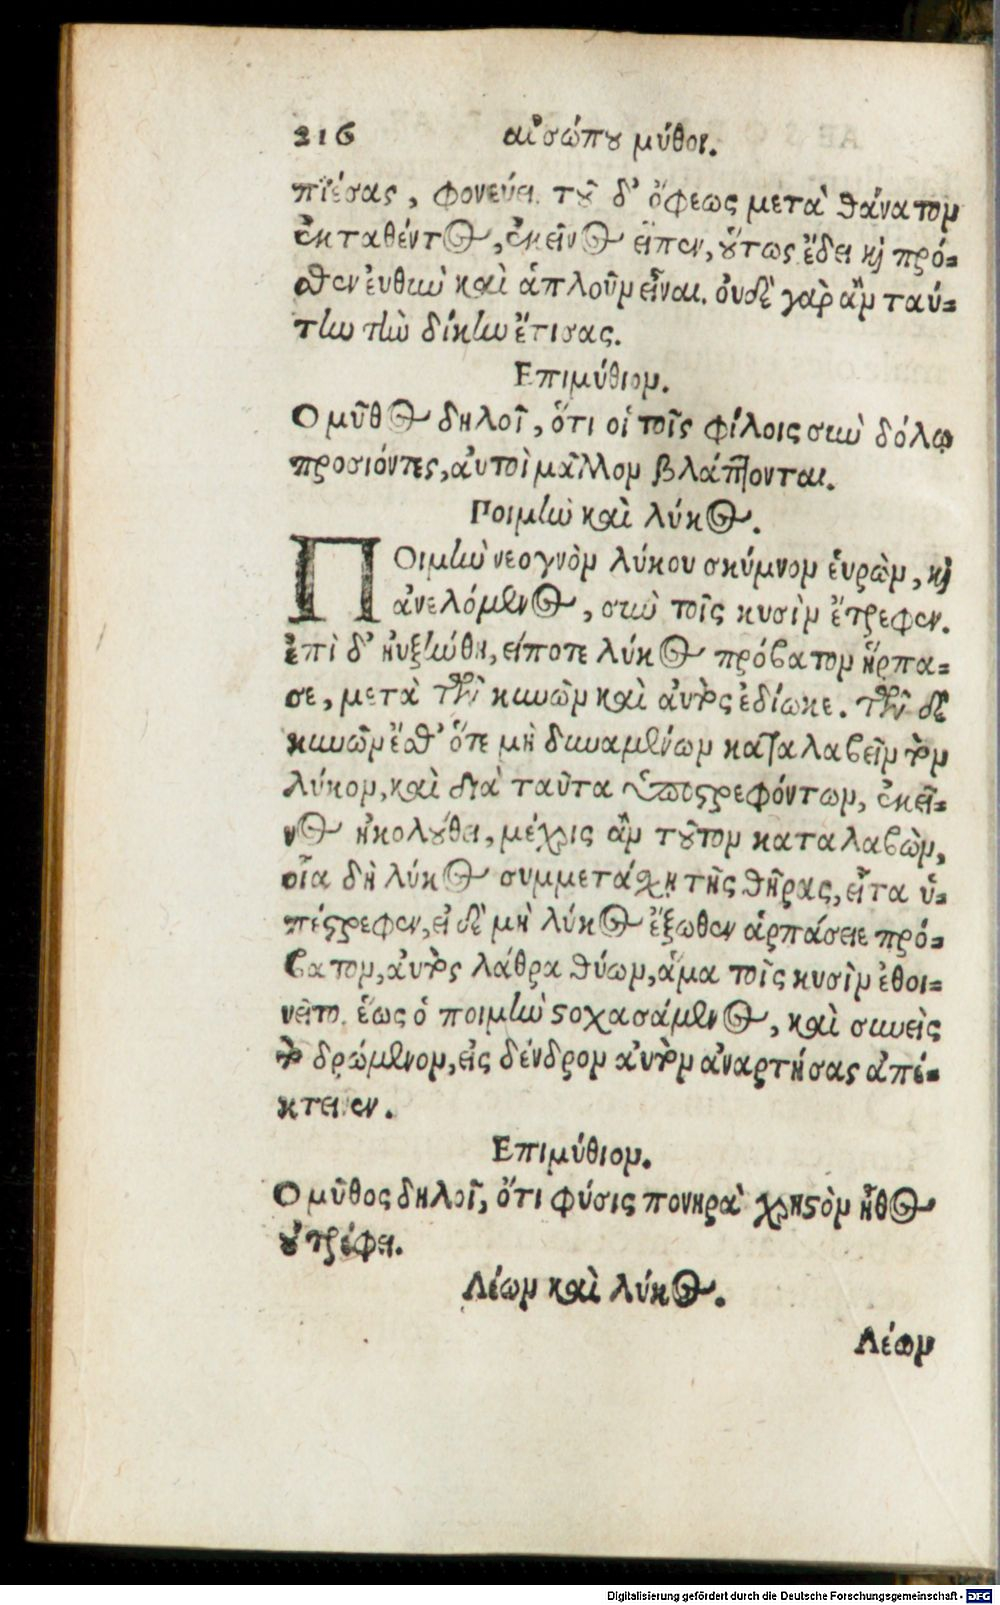 216 αἰσώπου μύθοι.
πιέσας, φονεύει. τοῦ δ' ὄφεως μετὰ θάνατον
ἐκταθέντος, ἐκεῖνος εἶπεν, οὕτως ἔδει καὶ πρό-
σθεν ἐυθὺν καὶ ἁπλοῦν εἶναι. οὐδὲ γὰρ ἂν ταύ-
την τὴν δίκην ἔτισας.
Επιμύθιον.
Ο μῦθος δηλοῖ, ὅτι οἱ τοῖς φίλοις σὺν δόλῳ
προσιόντες, ἀυτοὶ μᾶλλον βλάπτονται.
Ποιμὴν καὶ λύκος.
ΠΟιμὴν νεογνὸν λύκου σκύμνον ἑυρὼν, καὶ
ἀνελόμενος, σὺν τοῖς κυσὶν ἔτρεφεν.
ἐπὶ δ' ηὐξήνθη, εἴποτε λύκος πρόβατον ἥρπα-
σε, μετὰ τῶν κυνῶν καὶ ἀυτὸς ἐδίωκε. τῶν δὲ
κυνῶν ἔσθ' ὅτε μὴ δυναμένων καταλαβεῖν τὸν
λύκον, καὶ διὰ ταῦτα ὑποστρεφόντων, ἐκεῖ-
νος ἠκολούθει, μέχρις ἂν τοῦτον καταλαβὼν,
οἷα δὴ λύκος συμμετάσχῃ τῆς θήρας, εἶτα ὑ-
πέστρεφεν, εἰ δὲ μὴ λύκος ἔξωθεν ἁρπάσειε πρό-
βατον, ἀυτὸς λάθρα θύων, ἅμα τοῖς κυσὶν ἐθοι-
νεῖτο. ἕως ὁ ποιμὴν στοχασάμενος, καὶ συνεὶς
τὸ δρώμενον, εἰς δένδρον ἀυτὸν ἀναρτήσας ἀπέ-
κτεινεν.
Επιμύθιον.
Ο μῦθος δηλοῖ, ὅτι φύσις πονηρὰ χρηστὸν ἦθος
οὐ τρέφει.
Λέων καὶ λύκος.
Λέων
Digitalisierung gefördert durch die Deutsche Forschungsgemeinschaft - DFG